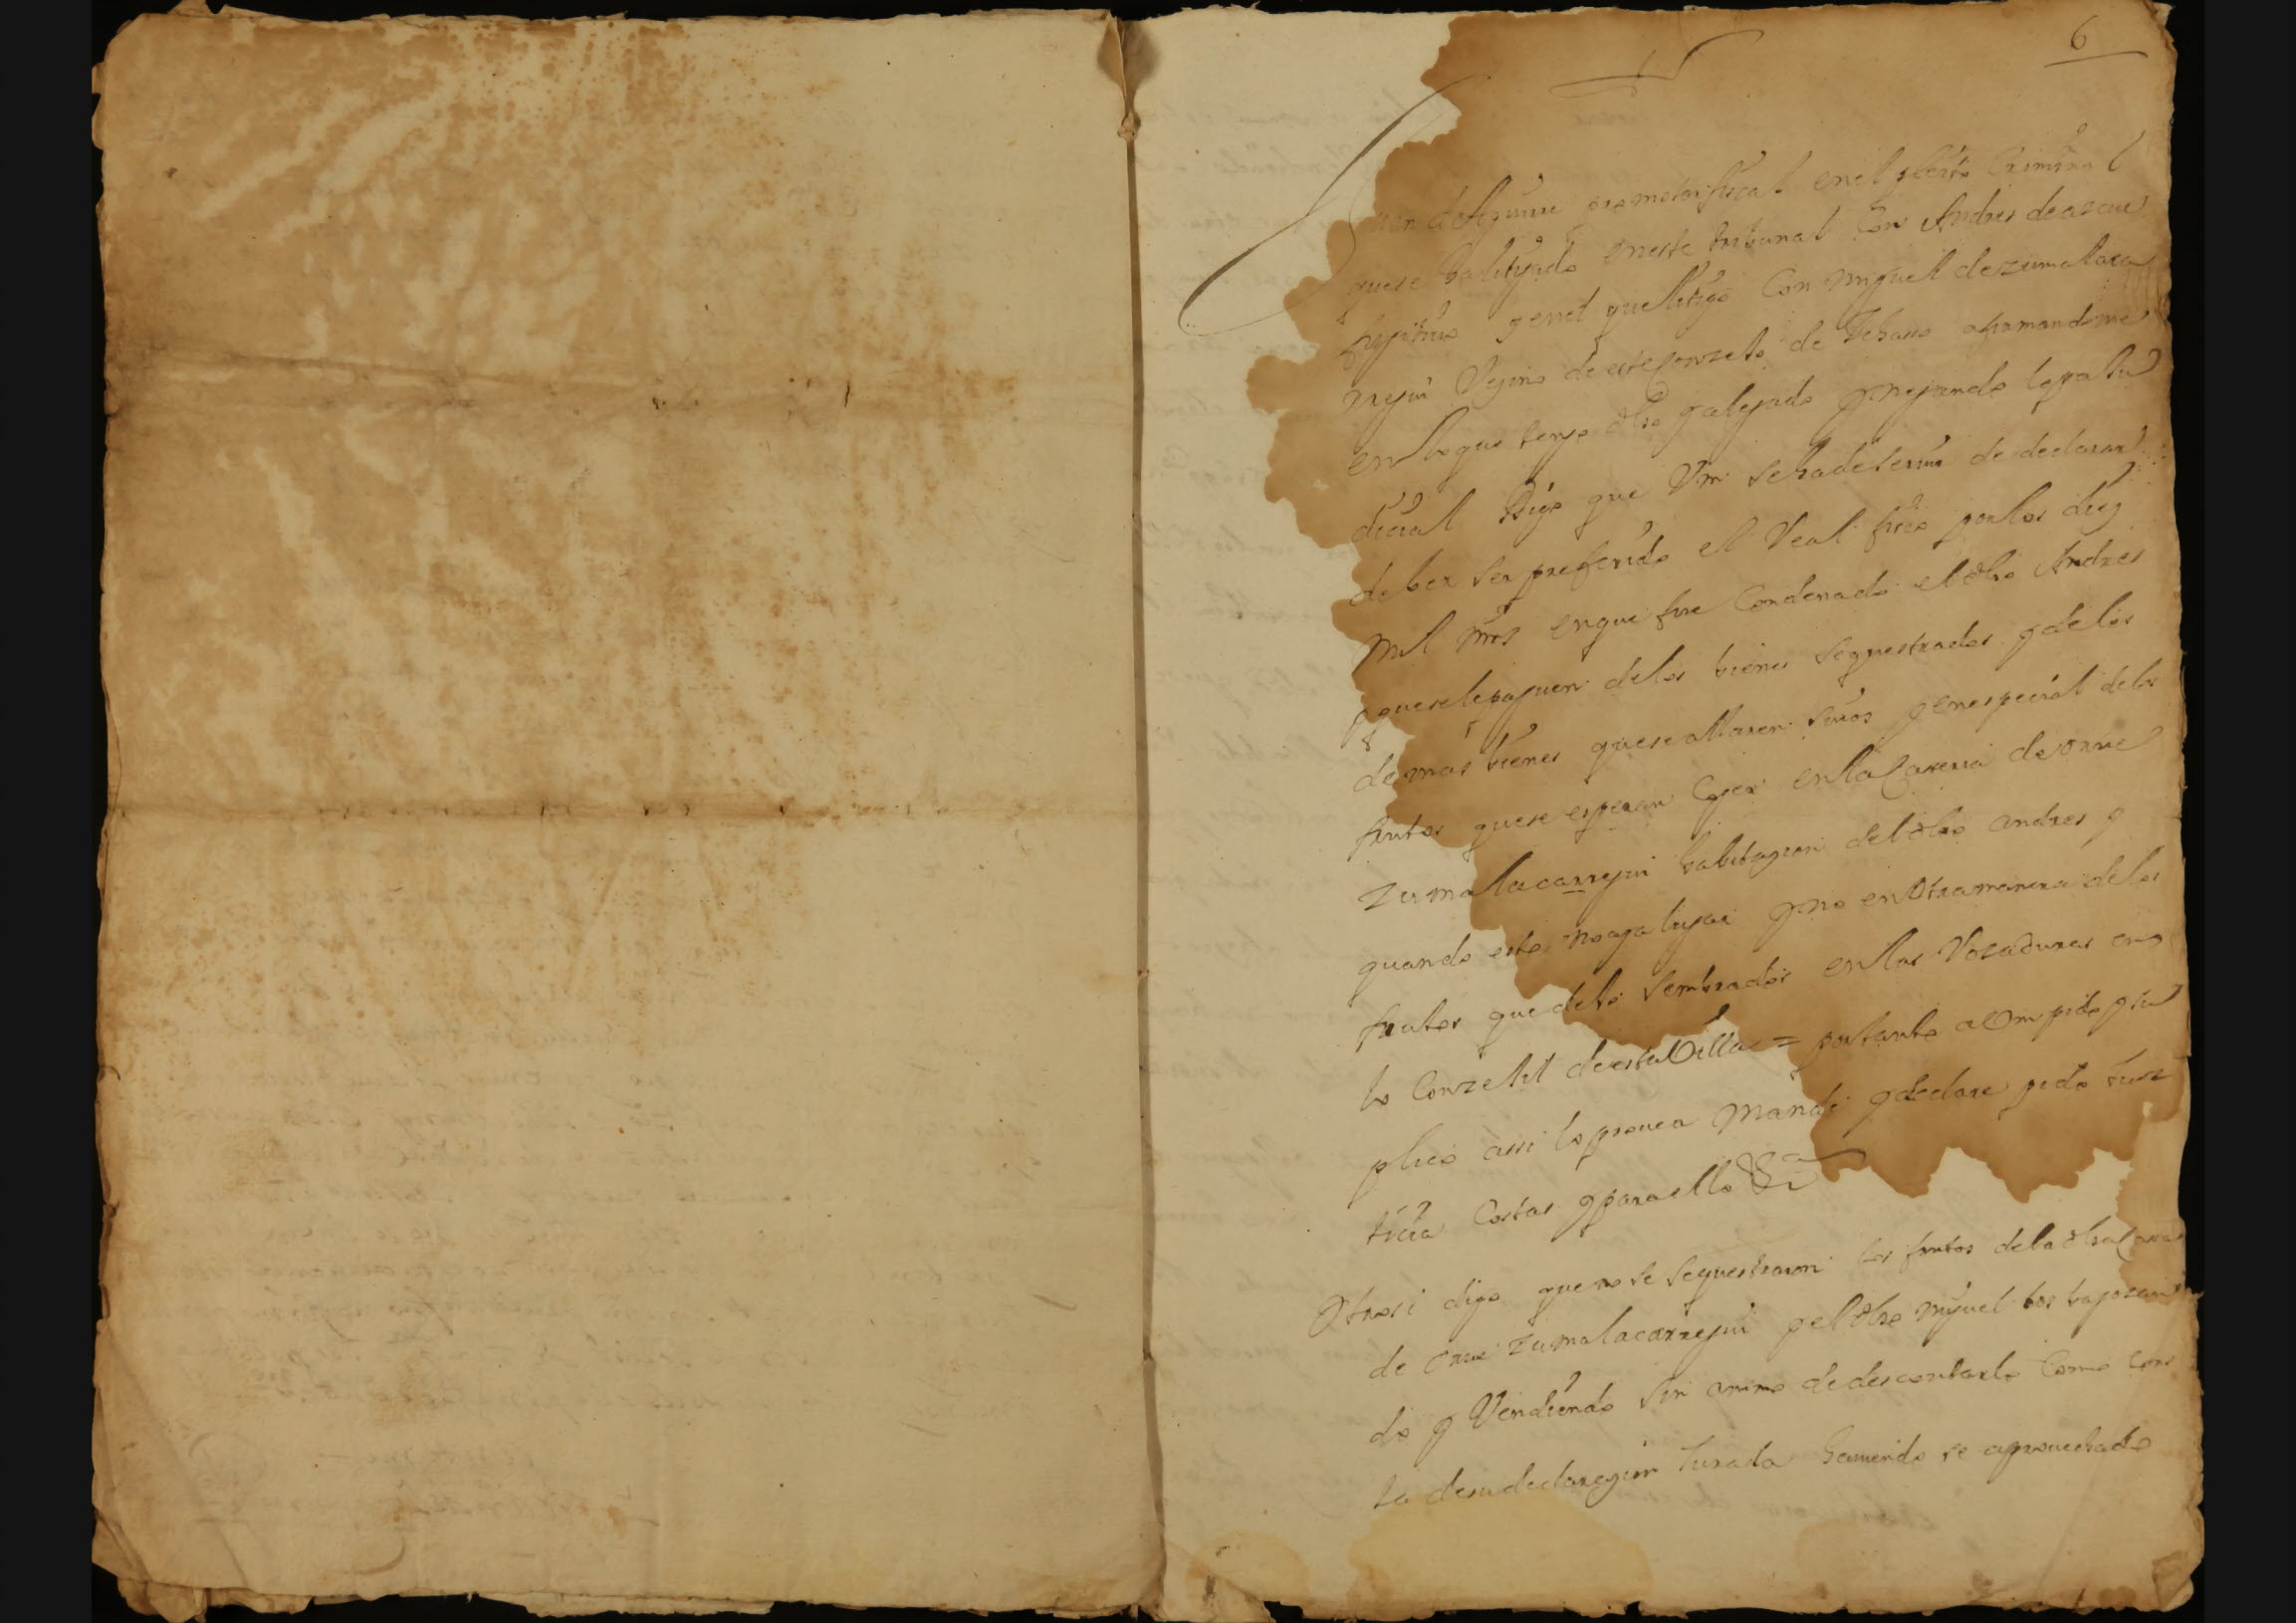 6
de Aguirre promotor fiscal en el pleito Criminal
que se a litigado en este tribunal Con Andres de azcue
fugitivo y en el que litigo Con Miguel de zumalaca
rregui Vezino de este conzelo de afirmandome
en lo que tengo dho y alegado y negando lo perju
dicial Digo que Vm se ha de servir de declarar
deber ser preferido el Real fisco por los diez
mil mrs en que fue Condenado el dho Andres
y que se le paguen de los bienes sequestrados y de los
demas bienes que se allaren suios y en especial de los
frutos que se esperan Coger en la Caseria de orue
zumalacarregui habitazion del dho andres y
quando esto no aya lugar y no en otra manera de los
frutos que de los sembrados en las Rozaduras en
lo Conzelil de esta Villa = por tanto a Vm pido y su
plico assi lo provea Mande y declare pido Jus
ticia Costas y para ello &a
Otrosi digo que no se sequestraron los frutos de la dha Casa
de orue zumalacarregui y el dho Miguel los ba gozan
do y Vendiendo sin animo de descontarlo Como cons
ta de su declarazion Jurada haviendo se aprovechado